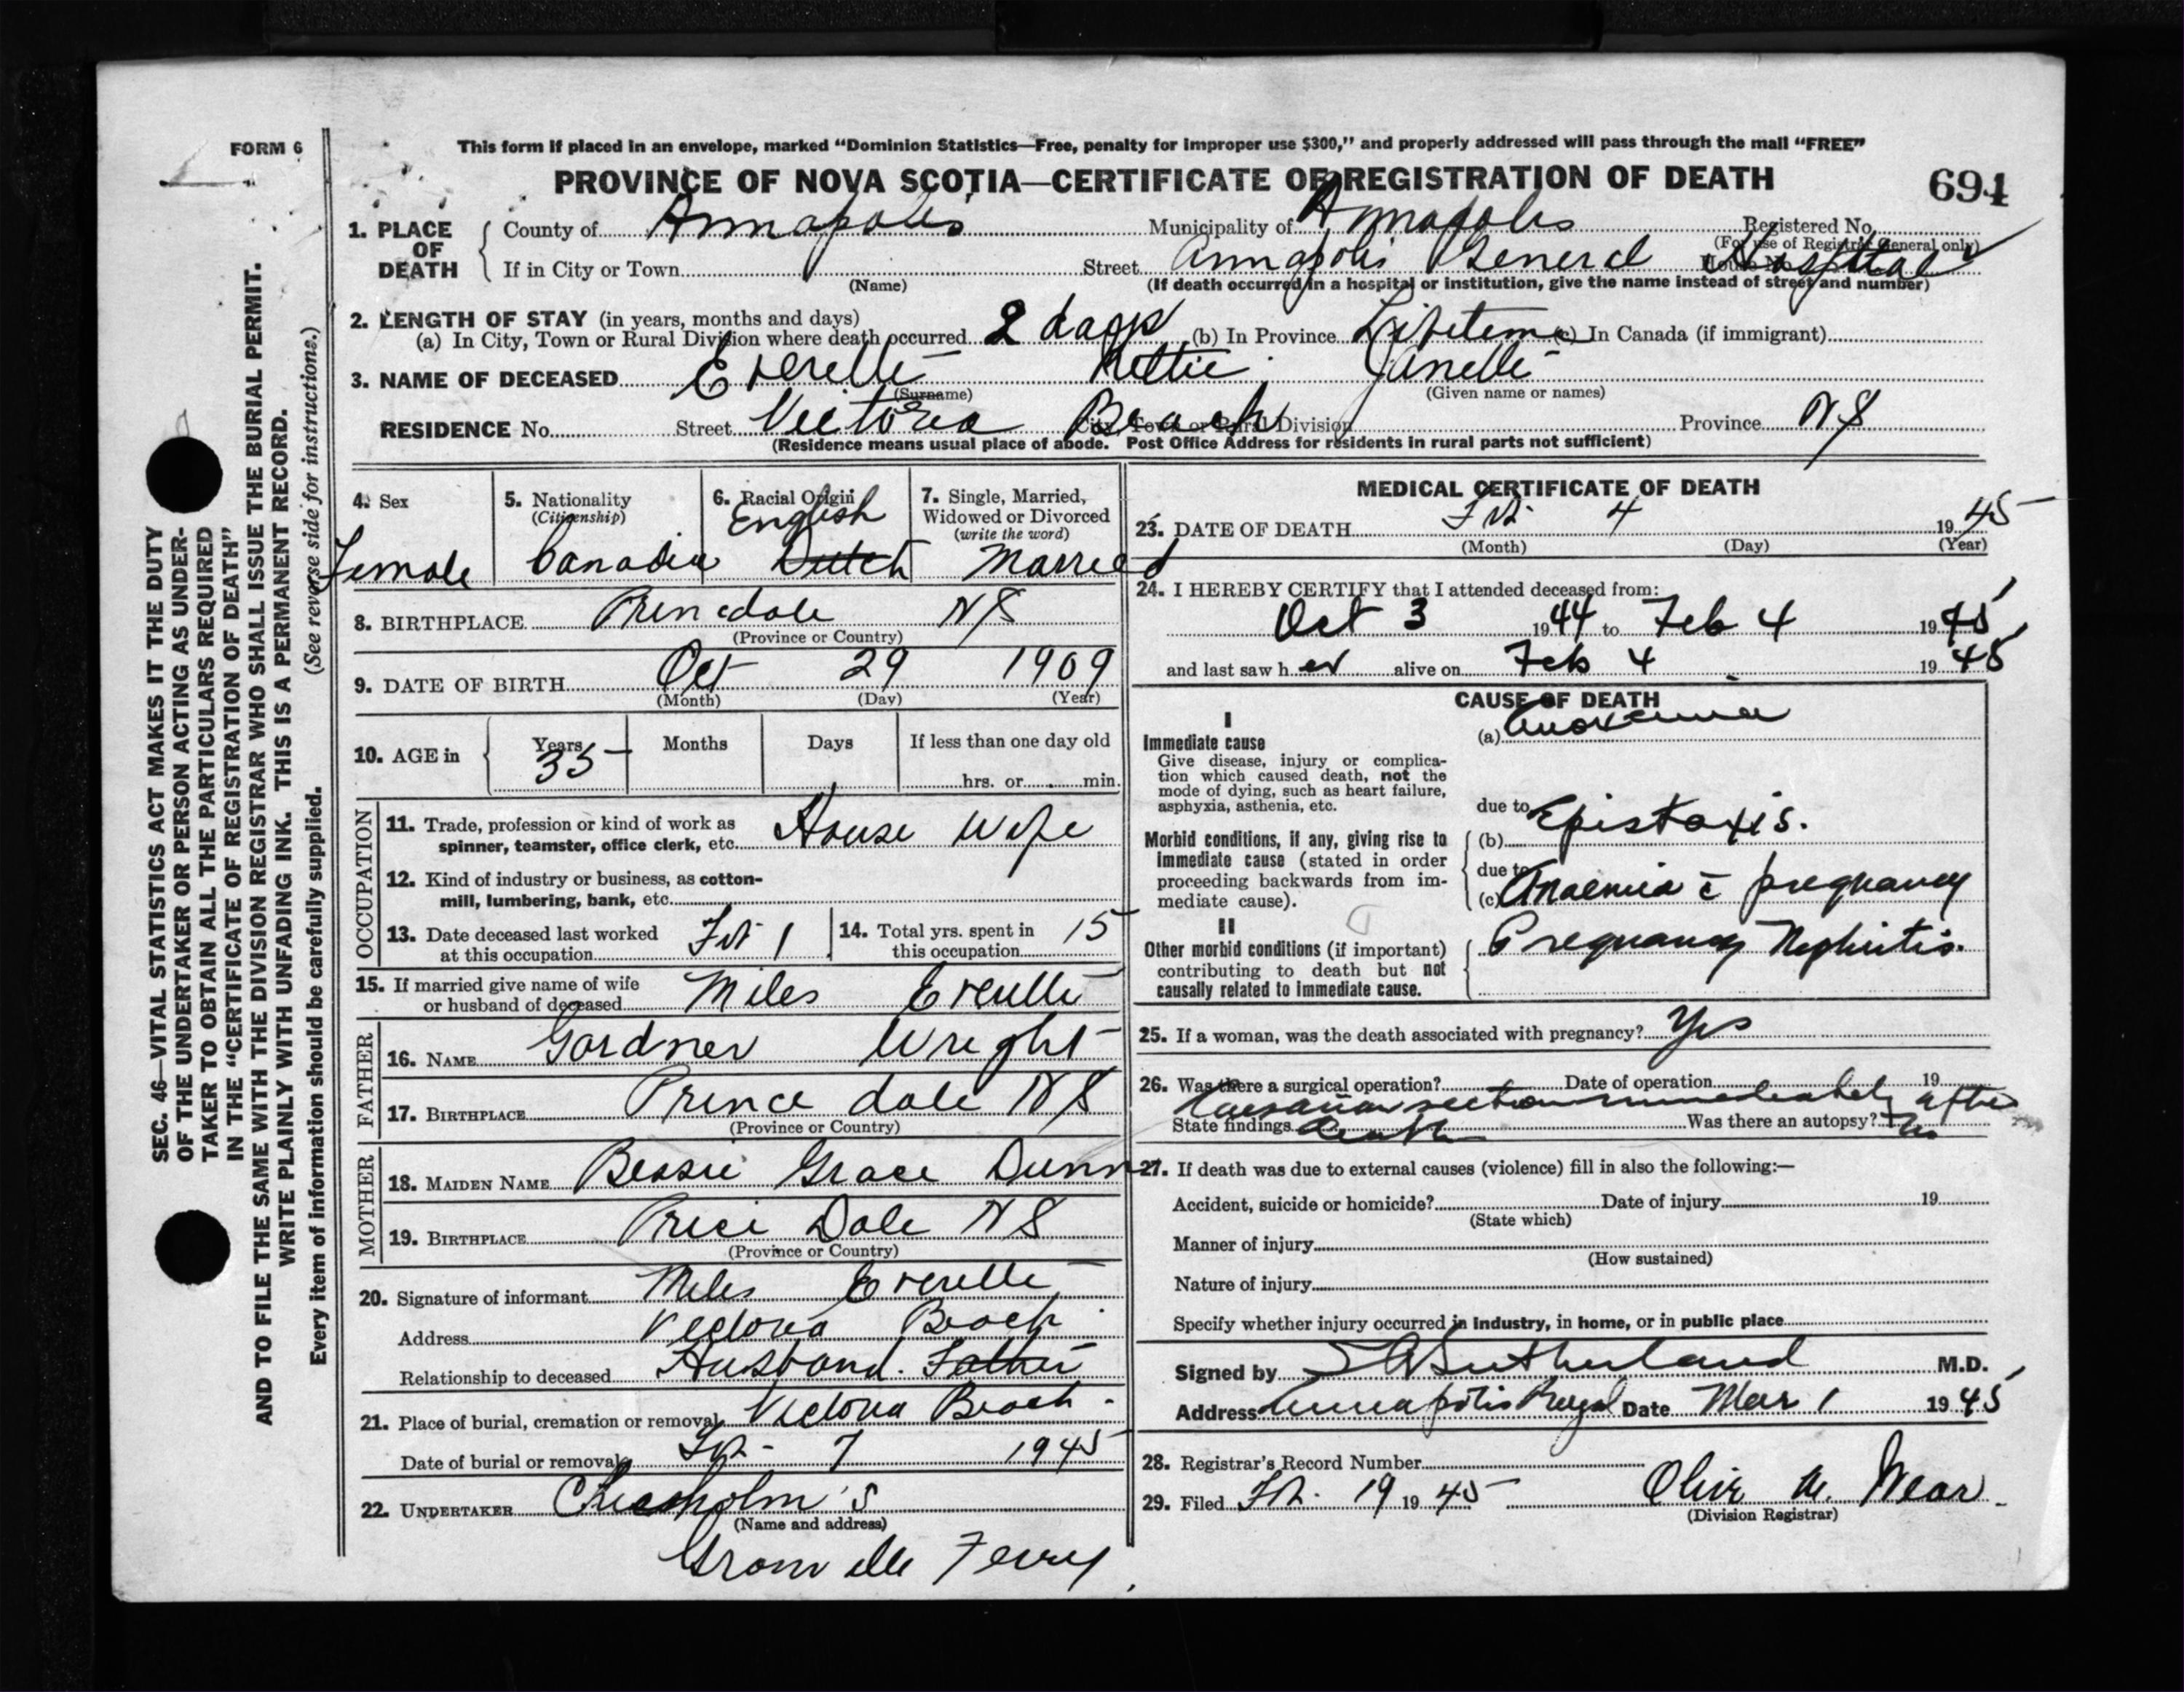 FORM 6
This form if placed in an envelope, marked "Dominion Statistics—Free, penalty for improper use $300," and properly addressed will pass through the mail "FREE"
PROVINCE OF NOVA SCOTIA—CERTIFICATE OF REGISTRATION OF DEATH
694
1. PLACE OF DEATH County of Annapolis Municipality of Annapolis Registered No.
(For use of Registrar General only)
If in City or Town Street Annapolis General Hospital House No.
(Name) (If death occurred in a hospital or institution, give the name instead of street and number)
2. LENGTH OF STAY (in years, months and days)
(a) In City, Town or Rural Division where death occurred 2 days (b) In Province Lifetime (c) In Canada (if immigrant)
3. NAME OF DECEASED Everette Nettie Janette
(Surname) (Given name or names)
RESIDENCE No. Street Victoria Beach City, Town or Rural Division Province NS
(Residence means usual place of abode. Post Office Address for residents in rural parts not sufficient)
SEC. 46—VITAL STATISTICS ACT MAKES IT THE DUTY
OF THE UNDERTAKER OR PERSON ACTING AS UNDER-
TAKER TO OBTAIN ALL THE PARTICULARS REQUIRED
IN THE "CERTIFICATE OF REGISTRATION OF DEATH"
AND TO FILE THE SAME WITH THE DIVISION REGISTRAR WHO SHALL ISSUE THE BURIAL PERMIT.
WRITE PLAINLY WITH UNFADING INK. THIS IS A PERMANENT RECORD.
Every item of information should be carefully supplied. (See reverse side for instructions.)
4. Sex 5. Nationality 6. Racial Origin 7. Single, Married,
(Citizenship) English Widowed or Divorced
(write the word)
Female Canadia Dutch Married
8. BIRTHPLACE Princdale NS
(Province or Country)
9. DATE OF BIRTH Oct 29 1909
(Month) (Day) (Year)
10. AGE in Years Months Days If less than one day old
35 hrs. or min.
OCCUPATION
11. Trade, profession or kind of work as
spinner, teamster, office clerk, etc. House Wife
12. Kind of industry or business, as cotton-
mill, lumbering, bank, etc.
13. Date deceased last worked
at this occupation Feb 1
14. Total yrs. spent in
this occupation 15
15. If married give name of wife
or husband of deceased Miles Everette
FATHER
16. NAME Gordner Wright
17. BIRTHPLACE Prince dale NS
(Province or Country)
MOTHER
18. MAIDEN NAME Bessie Grace Dunn
19. BIRTHPLACE Price Dale NS
(Province or Country)
20. Signature of informant Miles Everette
Address Victoria Beach
Relationship to deceased Husband. Father
21. Place of burial, cremation or removal Victoria Beach
Date of burial or removal Feb 7 1945
22. UNDERTAKER Chisholm's
(Name and address)
Granville Ferry
MEDICAL CERTIFICATE OF DEATH
23. DATE OF DEATH Feb. 4 1945
(Month) (Day) (Year)
24. I HEREBY CERTIFY that I attended deceased from:
Oct 3 1944 to Feb 4 1945
and last saw her alive on Feb 4 1945
CAUSE OF DEATH
I
Immediate cause
Give disease, injury or complica-
tion which caused death, not the
mode of dying, such as heart failure,
asphyxia, asthenia, etc.
(a) Anoxemia
due to
Morbid conditions, if any, giving rise to
immediate cause (stated in order
proceeding backwards from im-
mediate cause).
(b) Epistaxis.
due to
(c) Anaemia c̄ pregnancy
II
Other morbid conditions (if important)
contributing to death but not
causally related to immediate cause.
Pregnancy Nephritis.
25. If a woman, was the death associated with pregnancy? Yes
26. Was there a surgical operation? Date of operation 19
Caesarian section immediately after
State findings death Was there an autopsy? No
27. If death was due to external causes (violence) fill in also the following:—
Accident, suicide or homicide? Date of injury 19
(State which)
Manner of injury
(How sustained)
Nature of injury
Specify whether injury occurred in industry, in home, or in public place
Signed by Sutherland M.D.
Address Annapolis Royal Date Mar 1 1945
28. Registrar's Record Number
29. Filed Feb. 19 1945 Olive M. Wear
(Division Registrar)